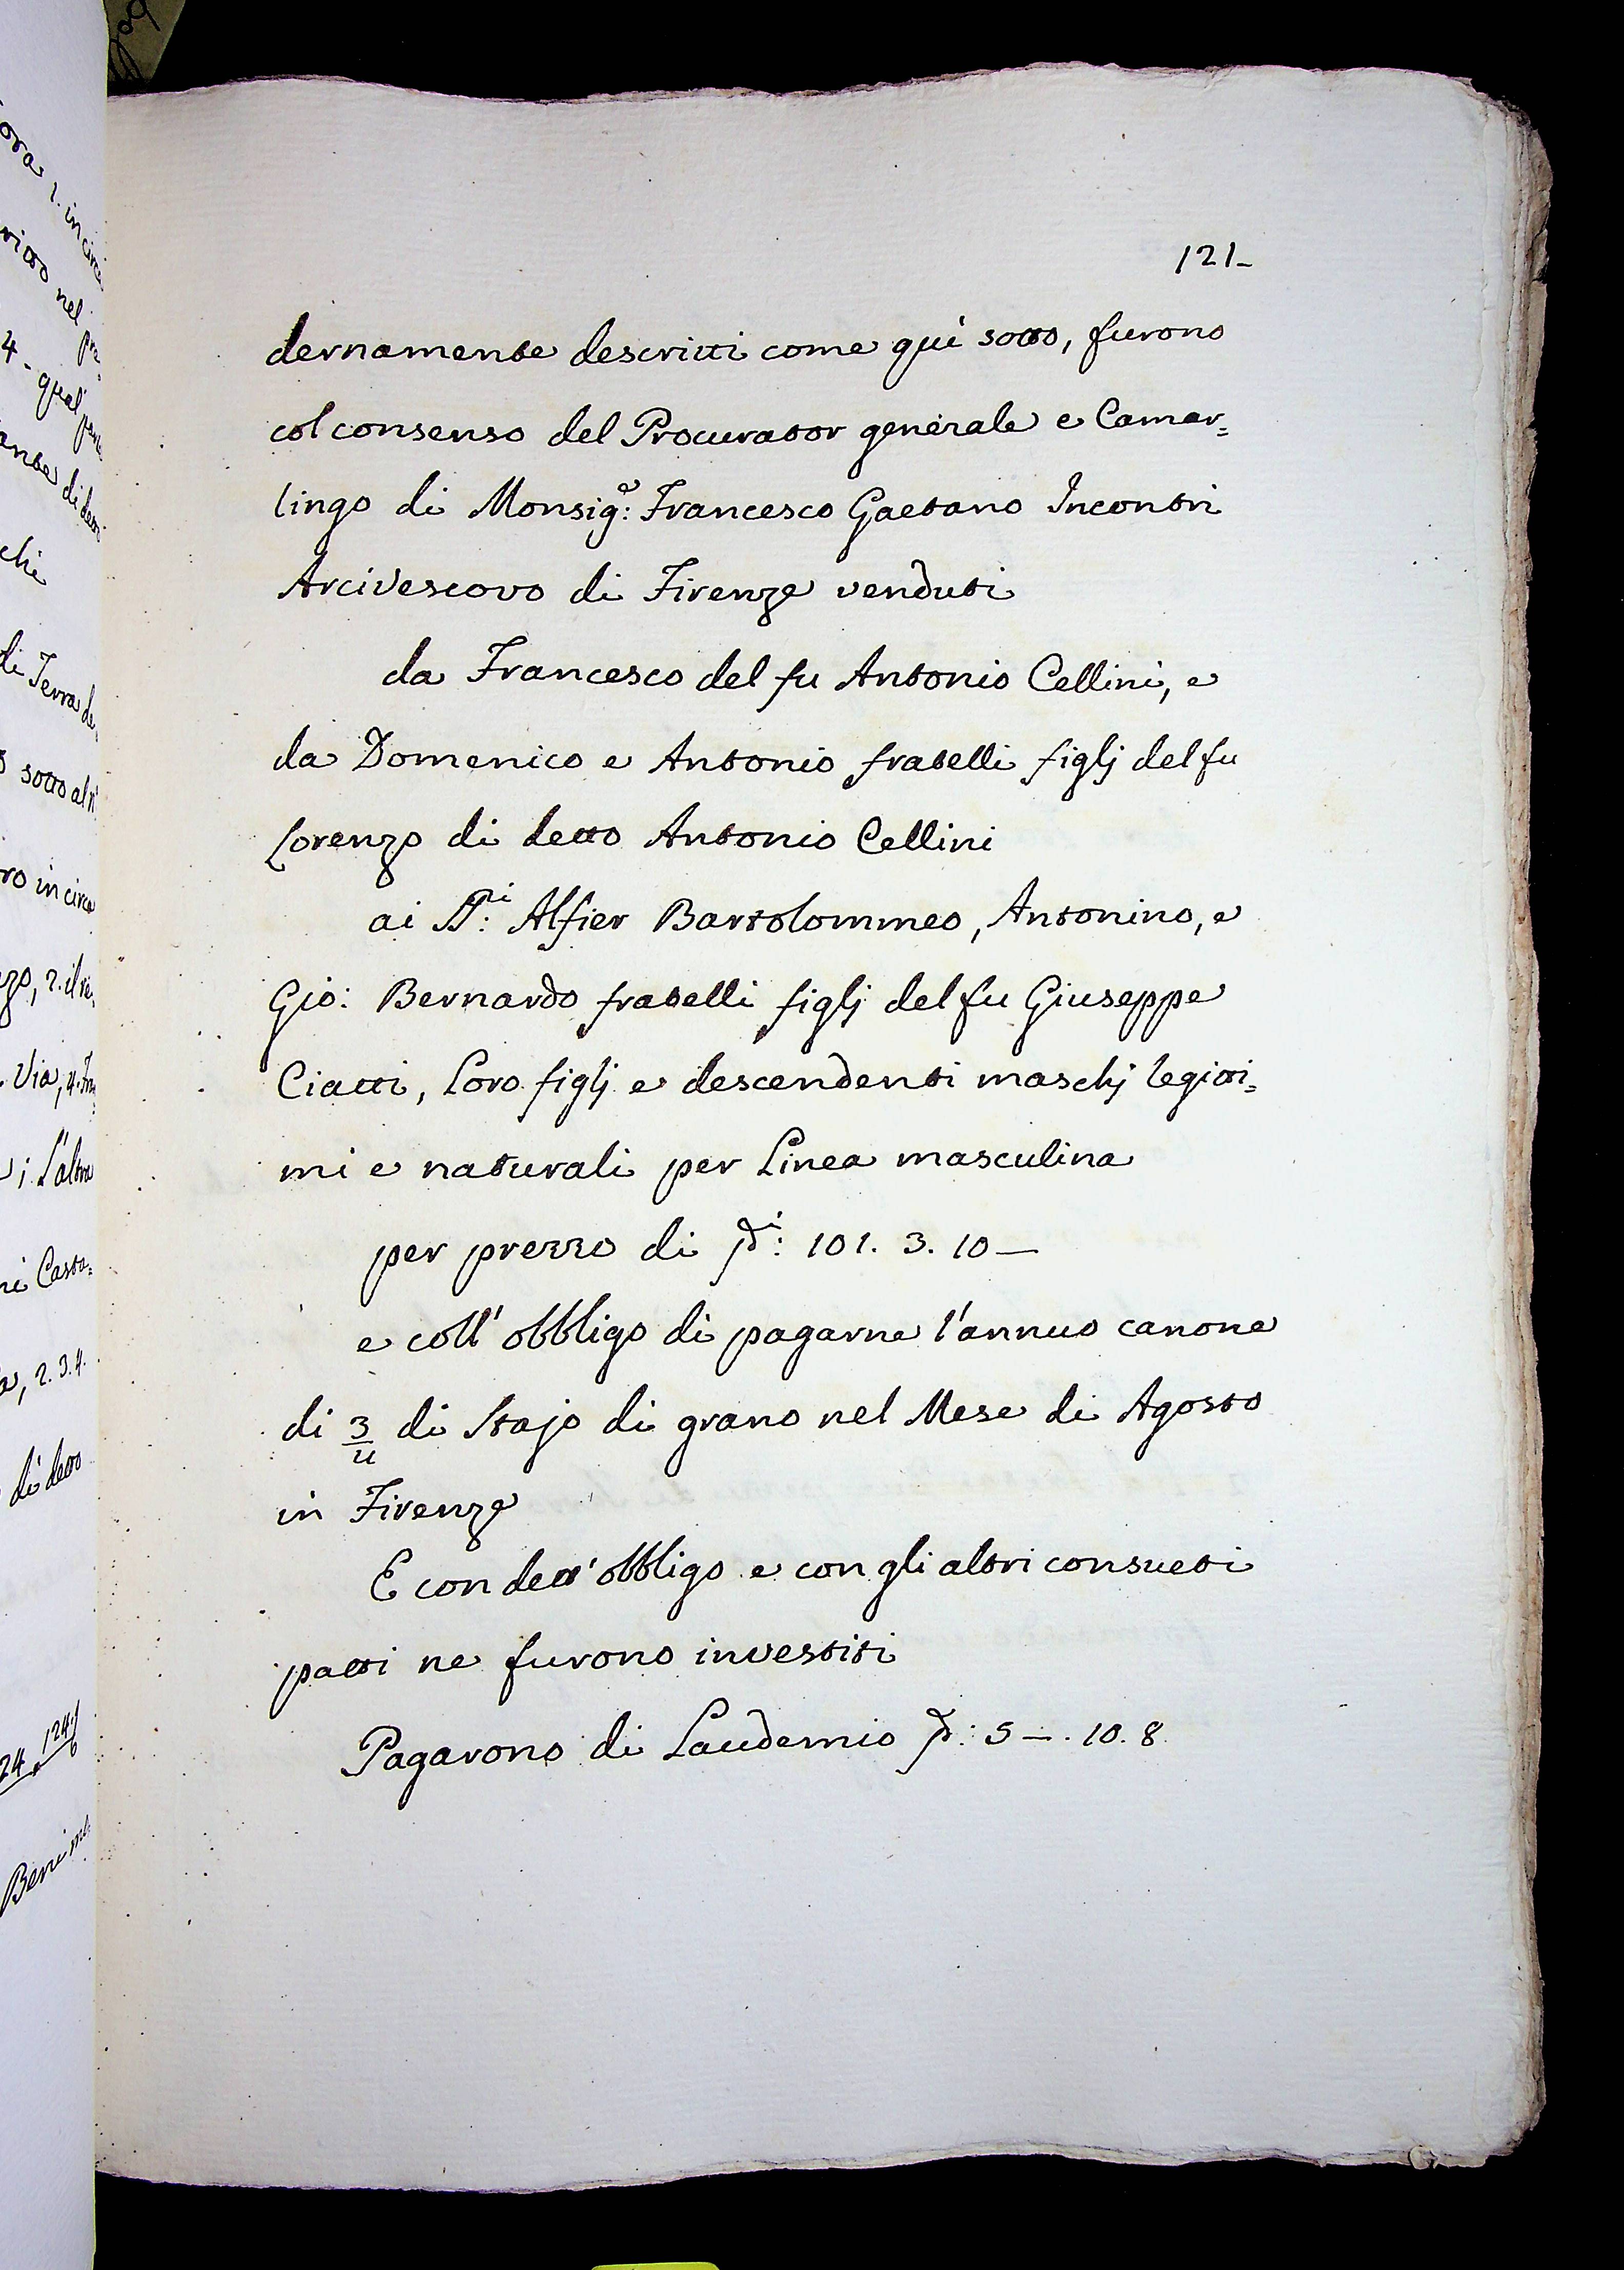 121-
dernamente descritti come qui sotto, furono
col consenso del Procurator generale e Camar=
lingo di Monsig:e Francesco Gaetano Incontri
Arcivescovo di Firenze venduti
da Francesco del fu Antonio Cellini, e
da Domenico e Antonio fratelli figlj del fu
Lorenzo di detto Antonio Cellini
ai Alfier Bartolommeo, Antonino, e
Gio: Bernardo fratelli figlj del fu Giuseppe
Ciatti, Loro figlj e descendenti maschj legitti=
mi e naturali per Linea masculina
per prezzo di 101. 3. 10 —
e coll' obbligo di pagarne l'annuo canone
di 3/4 di Stajo di grano nel Mese di Agosto
in Firenze
E con dett' obbligo e con gli altri consueti
patti ne furono investiti
Pagarono di Laudemio 5 —. 10. 8.